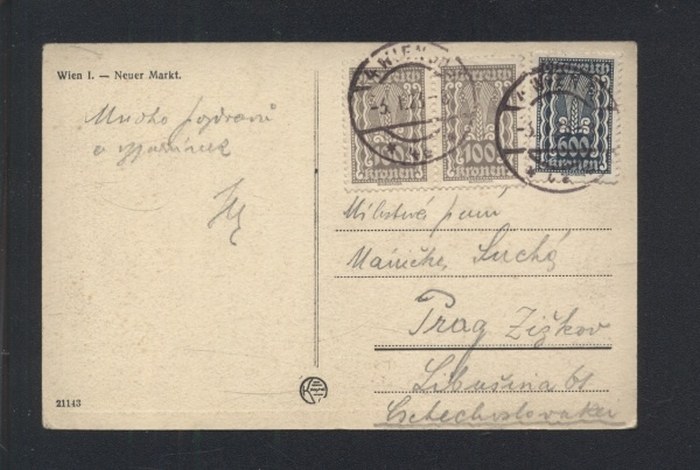 Wien I. — Neuer Markt.
Mnoho pozdravů
a vzpomínek
WIEN
3. I. 23
Österreich
100
Kronen
Österreich
100
Kronen
WIEN
3.
Österreich
600
Kronen
Milostivá paní
Suchá
Prag Žižkov
Libušina 61
Cschechoslovakei
21143